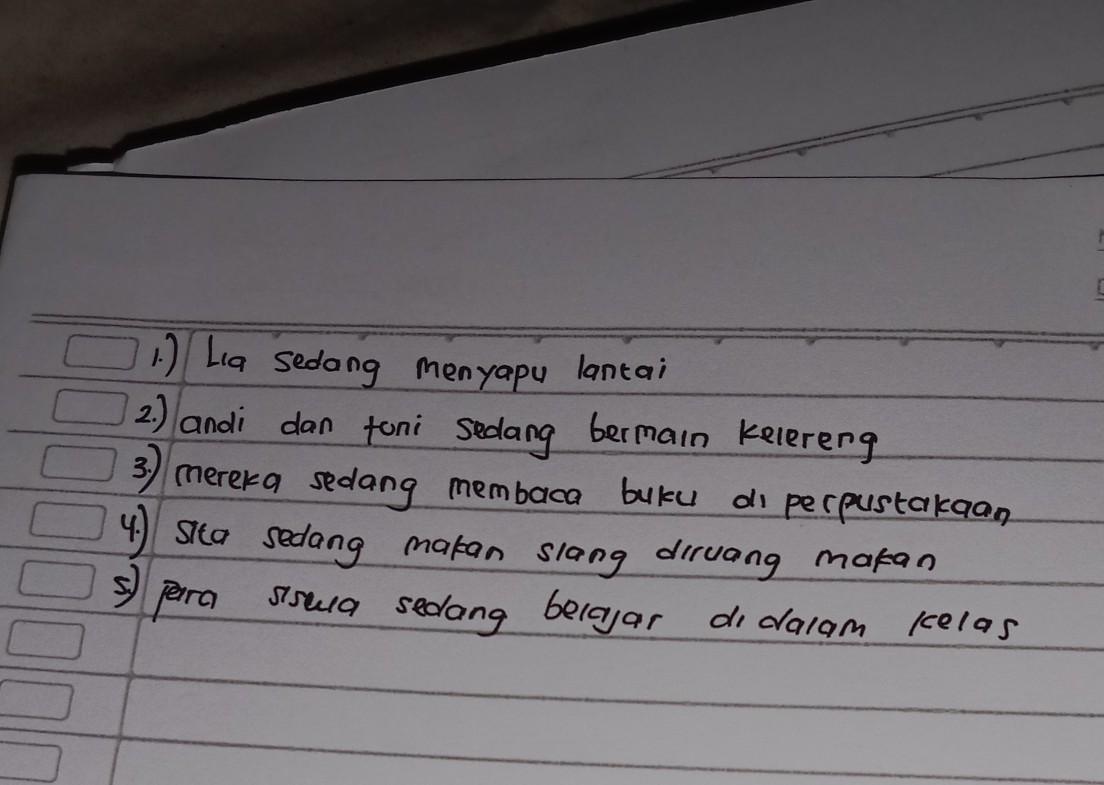 1.) Lia sedang menyapu lantai
2.) andi dan toni sedang bermain kelereng
3.) mereka sedang membaca buku di perpustakaan
4.) sita sedang makan siang diruang makan
5.) para siswa sedang belajar di dalam kelas